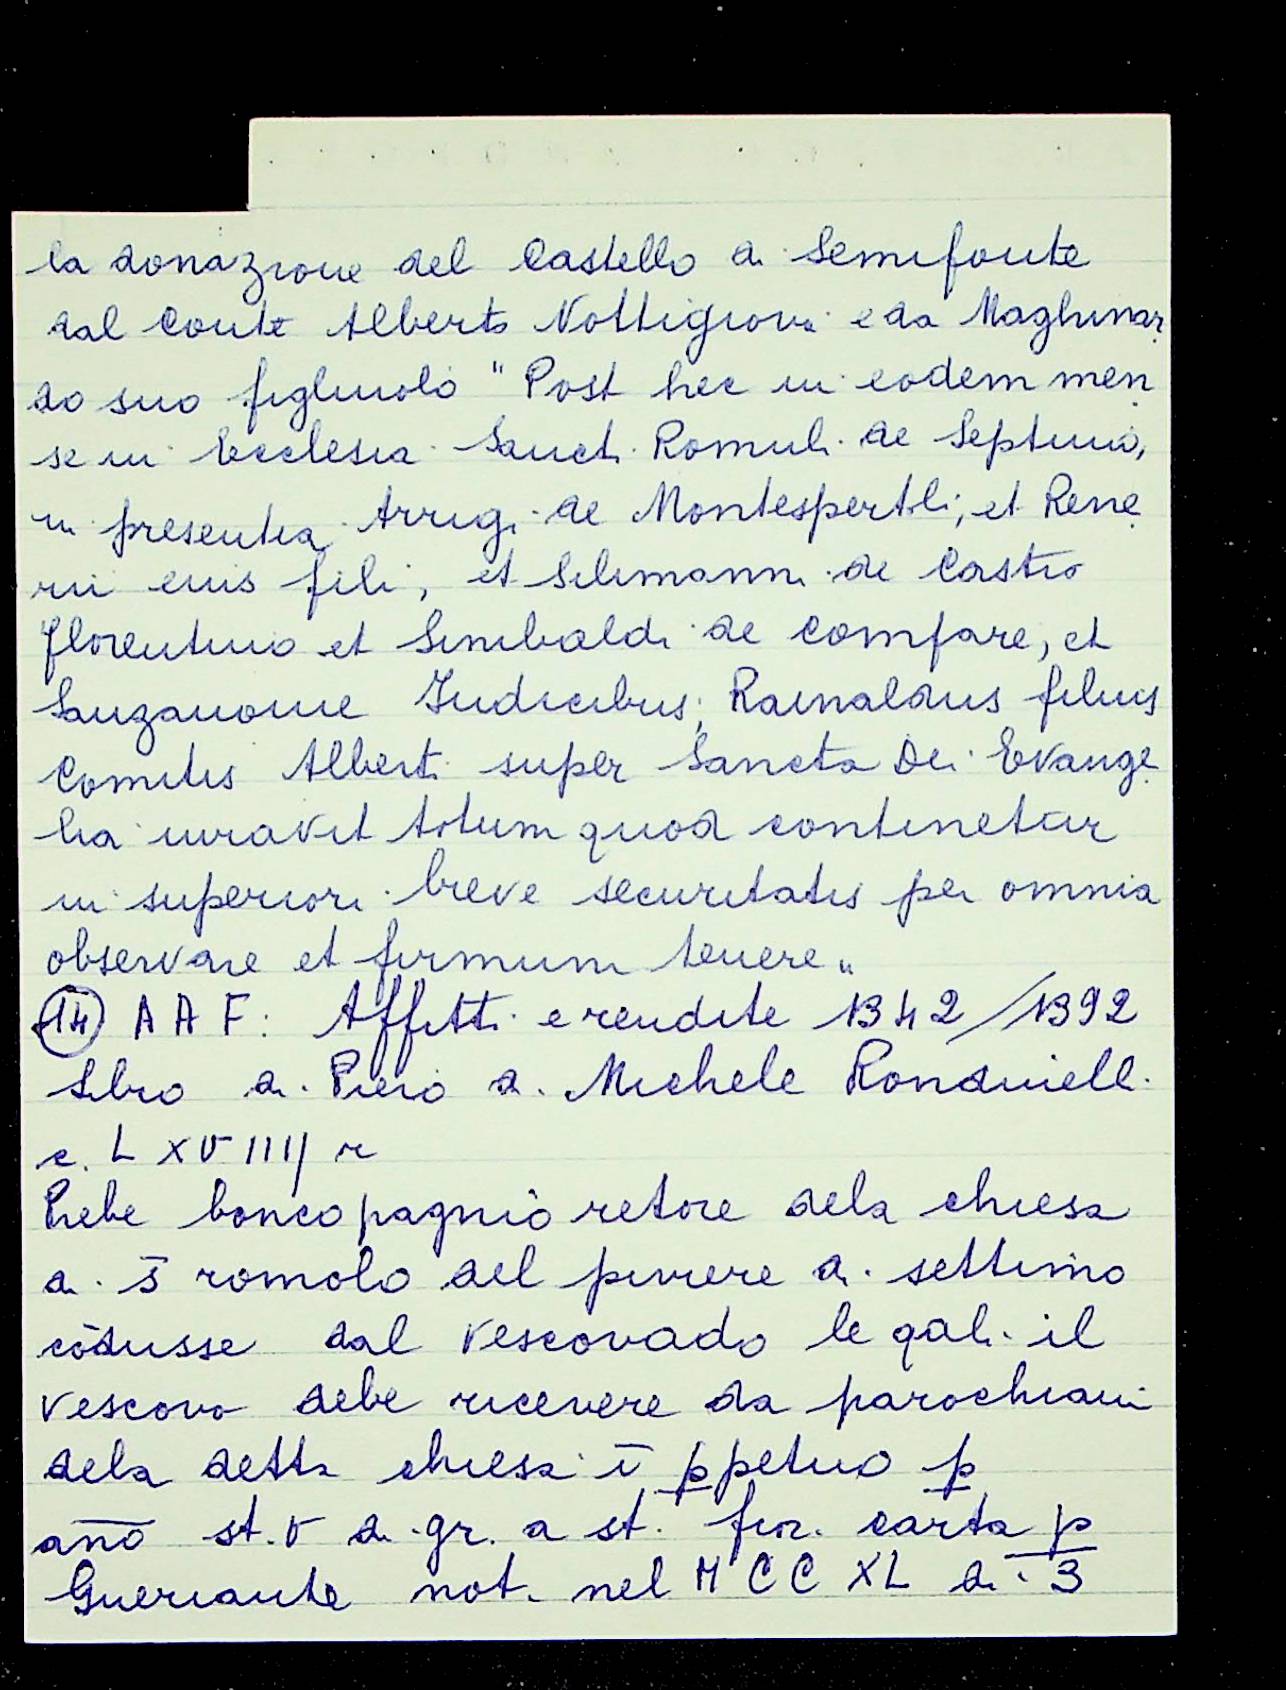 la donazione del Castello di Semifonte
dal Conte Alberto Nottigiova e da Maghinar
do suo figliuolo "Post hec in eodem men
se in Ecclesia Sancti Romuli de Septimo,
in presentia Arrigi de Montespertoli, et Rene
rii eius fili, et Silimanni de Castro
florentino et Sinibaldi de comfare, et
Sanzanome Iudicibus; Rainaldus filius
Comitis Alberti super Sancta Dei Evange
lia iuravit totum quod continetur
in superiori breve securitatis per omnia
observare et firmum tenere"
(14) A A F: Affitti e rendite 1342/1392
Libro di Piero di Michele Rondinelli
c. L XV IIII r
Prebe boncopagnio retore dela chiesa
di s̄ romolo del piviere di settimo
cōdusse dal vescovado le qali il
vescovo debe ricevere da parochiani
dela detta chiesa ī p̱petuo p̱
an̄o st. V di gr. a st. fior. carta p̱
Gueriante not. nel M C C XL di 3